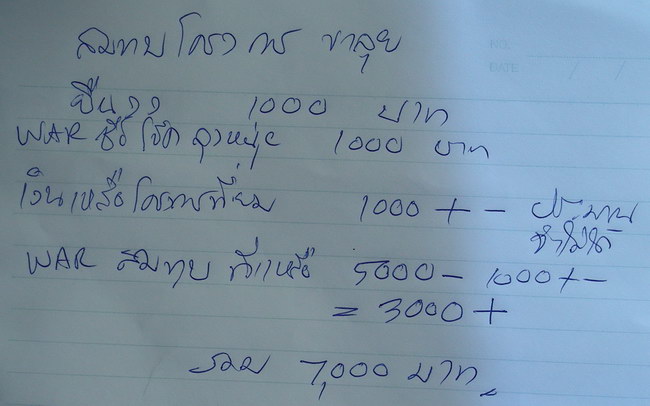 สมทบโครงการ ขาลุย
ปืนวว 1000 บาท
WAR ซื้อ โชค 1000 บาท
เงินเหลือโครงการที่ยม 1000 + - ประมาน
จำไม่ได้
WAR สมทบ ที่เหลือ 5000 - 1000 + -
= 3000 +
รวม 7,000 บาท